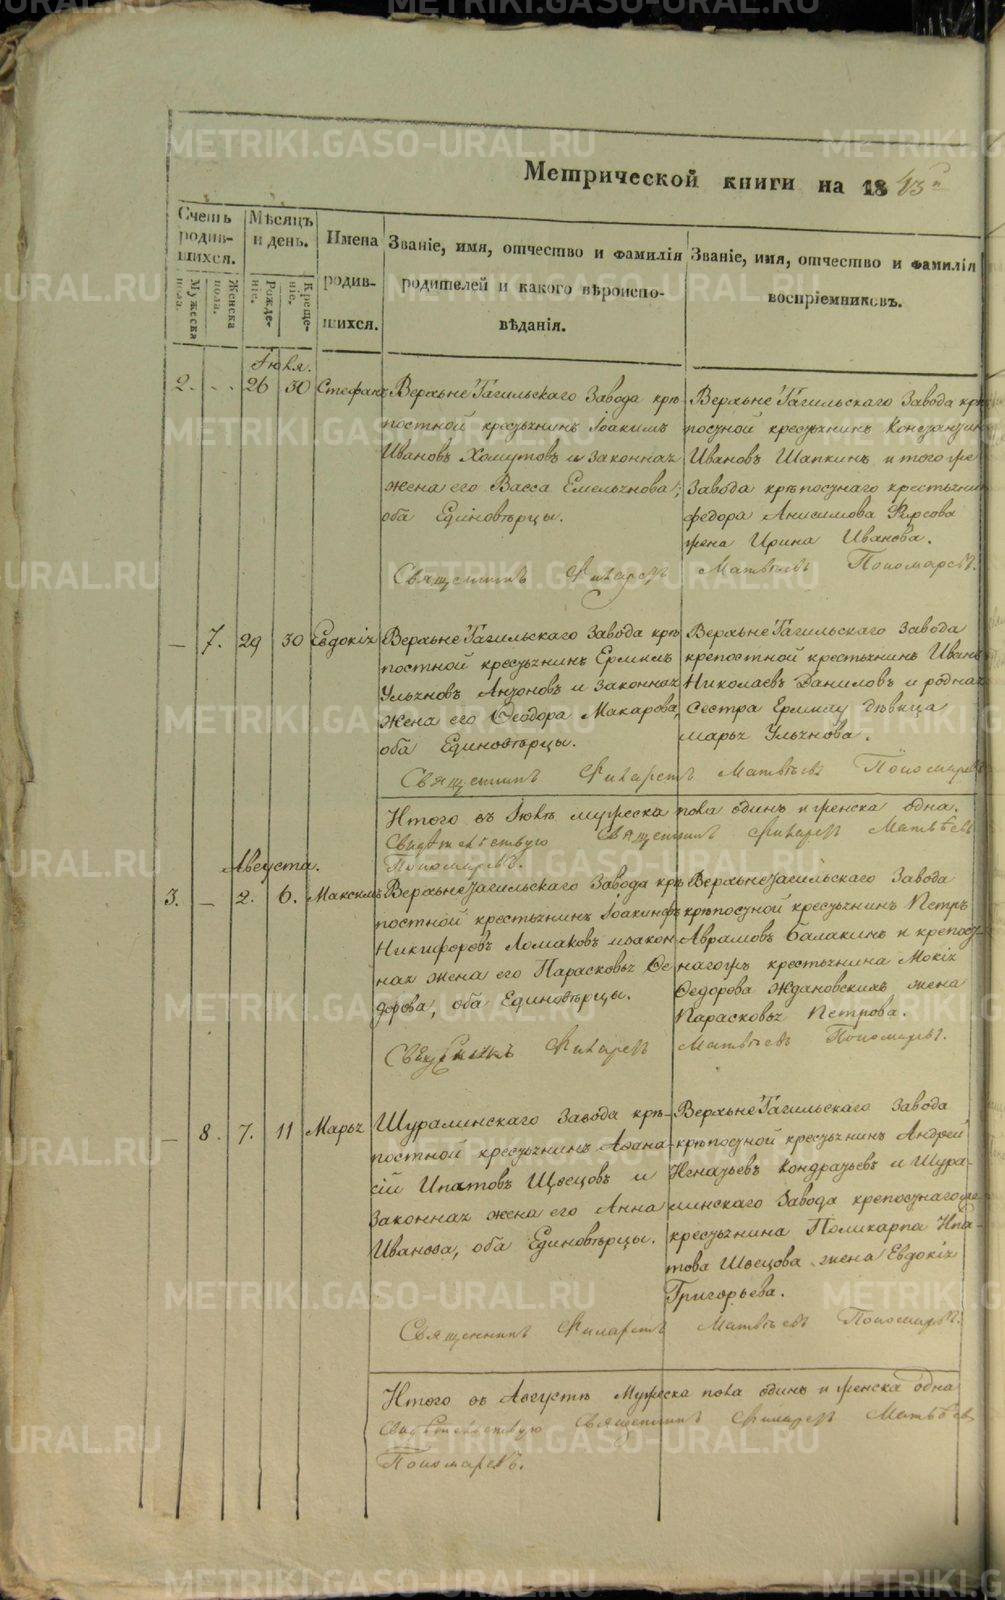 METRIKI.GASO-URAL.RU
Метрической книги на 1843й
Счетъ родив-шихся.
Мѣсяцъ и день.
Имена родив-шихся.
Званіе, имя, отчество и фамилія родителей и какого вѣроиспо-вѣданія.
Званіе, имя, отчество и фамилія воспріемниковъ.
Мужеска пола.
Женска пола.
Рожде-ніе.
Креще-ніе.
Іюля.
2. - 26 30 Стефанъ
Верхъне Тагильскаго Завода крѣ-
постной крестьянинъ Іоакимъ
Ивановъ Хомутовъ и законная
жена его Васса Емельянова;
оба Единовѣрцы.
Верхъне Тагильскаго Завода крѣ
постной крестьянинъ Констанзин
Ивановъ Шапкинъ и того же
Завода крѣпостнаго крестьянин
федора Анисимова Фирсова
жена Ирина Иванова.
Священникъ Филаретъ Матвѣевъ Пономаревъ.
— 7. 29 30 Евдокія
Верхьне Тагильскаго Завода крѣ
постной крестьянинъ Ермилъ
Ульяновъ Антоновъ и законная
жена его Ѳеодора Макарова,
оба Единовѣрцы.
Верхьне Тагильскаго Завода
крепостной крестьянинъ Иванъ
Николаевъ Даниловъ и родная
сестра Ермилу дѣвица
марья Ульянова.
Священникъ Филаретъ Матвѣевъ Пономаревъ
Итого въ Іюлѣ мужеска пола одинъ и женска одна.
Свидѣтельствую Священникъ Филаретъ Матвѣевъ
Пономаревъ.
Августа.
3. — 2. 6. Максимъ
Верхьнетагильскаго Завода крѣ
постной крестьянинъ Іоакинфъ
Никифоровъ Ломаковъ изакон
ная жена его Парасковья Ѳе
дорова, оба Единовѣрцы.
Верхьнетагильскаго Завода
крѣпостной крестьянинъ Петръ
Аврамовъ Балакинъ и крепост
нагогжъ крестьянина Мокія
Ѳедорова Ждановскихъ жена
Парасковья Петрова.
Священникъ Филаретъ Матвѣевъ Пономаревъ.
— 8. 7. 11 Марья
Шуралинскаго Завода крѣ-
постной крестьянинъ Аѳана-
сій Ипатовъ Швецовъ и
Законная жена его Анна
Иванова, оба Единовѣрцы.
Верхьне Тагильскаго Завода
крѣпостной крестьянинъ Андрей
Игнатьевъ Кондратьевъ и Шура-
линскаго Завода крепостнаго
крестьянина Поликарпа Ипа-
това Швецова жена Евдокія
Григорьева.
Священникъ Филаретъ Матвѣевъ Пономаревъ.
Итого въ Августѣ Мужеска пола одинъ и женска одна
Свидѣтельствую Священникъ Филаретъ Матвѣевъ
Пономаревъ.